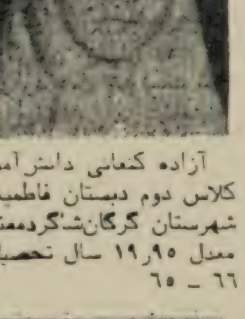 آزاده کنعانی دانش‌آمو
کلاس دوم دبستان فاطمیه
شهرستان گرگان‌شاگردممتا
معدل ۱۹٫۹۵ سال تحصیلی
۶۵ – ۶۶